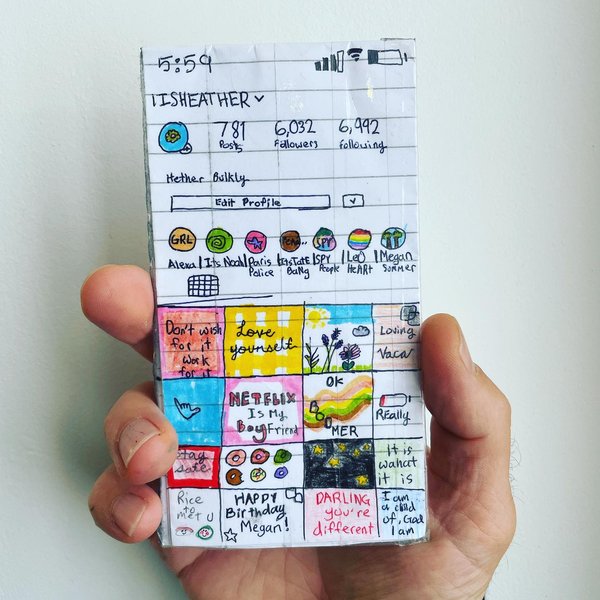 5:59
11SHEATHER
781 6,032 6,992
Posts Followers Following
Hether Bulkly
Edit Profile
GRL
SPY
Alexa Its Noah Paris Police ItsTate Bang SPY People Leo HeArt Megan Summer
Don't wish for it work for it
Love yourself
Loving Vaca
NETFLIX Is My Boyfriend
OK MER
REally
stay safe
It is wahat it is
Rice to met U
HAPPY Birthday Megan!
DARLING you're different
I am a child of, God I am